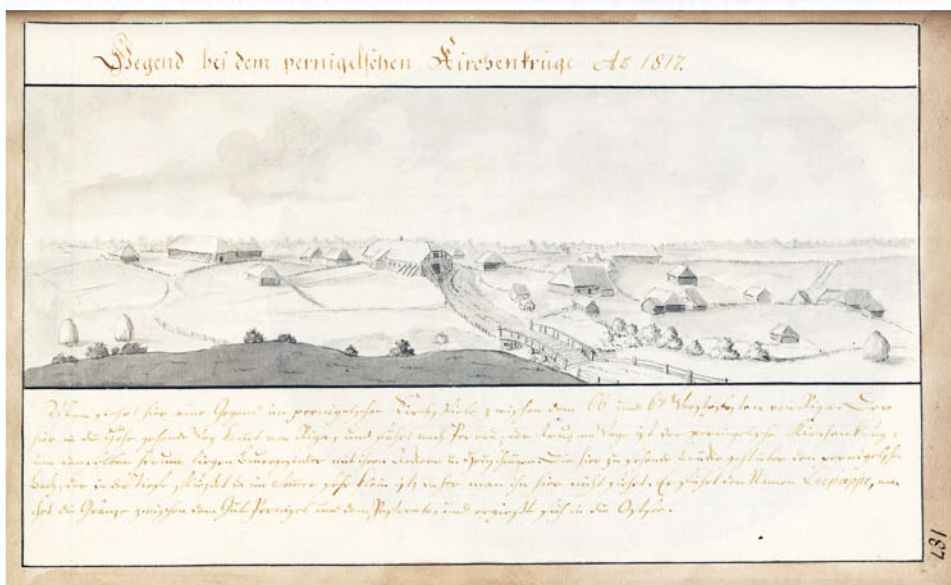 Gegend bei dem pernigelschen Kirchenkruge Ao 1817.
Man siehet hier eine Gegend im pernigelschen Kirchspiele zwischen dem 66 und 67 Werstpfosten von Riga. Der
hier in die Höhe gehende Weg kömt von Riga, und führt nach Pernau, der Krug am Wege ist der pernigelsche Kirchenkrug,
um denselben herum liegen Bauergesinder mit ihren Feldern und Heuschlägen. Die hier zu sehende Brücke geht über den pernigelschen
Bach, der in der Tiefe fließet da im Sommer sehr klein ist, daher man ihn hier nicht siehet. Er führet den Namen Leepuppe, macht
die Gränze zwischen dem Gut Pernigel und dem Pastorate, und ergießt sich in die Ostsee.
187